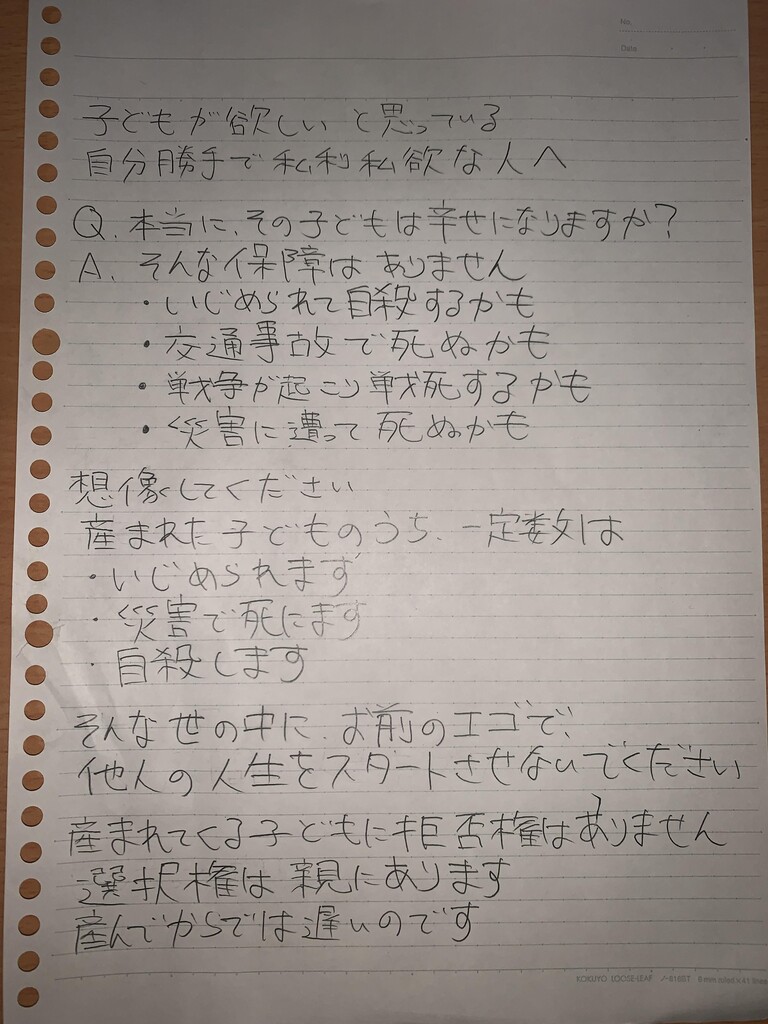 No.
Date
子どもが欲しいと思っている
自分勝手で私利私欲な人へ
Q. 本当に、その子どもは幸せになりますか?
A. そんな保障はありません
・いじめられて自殺するかも
・交通事故で死ぬかも
・戦争が起こり戦死するかも
・災害に遭って死ぬかも
想像してください
産まれた子どものうち、一定数は
・いじめられます
・災害で死にます
・自殺します
そんな世の中に、お前のエゴで、
他人の人生をスタートさせないでください
産まれてくる子どもに拒否権はありません
選択権は親にあります
産んでからでは遅いのです
KOKUYO LOOSE-LEAF ノ-816BT 6mm ruled×41 lines